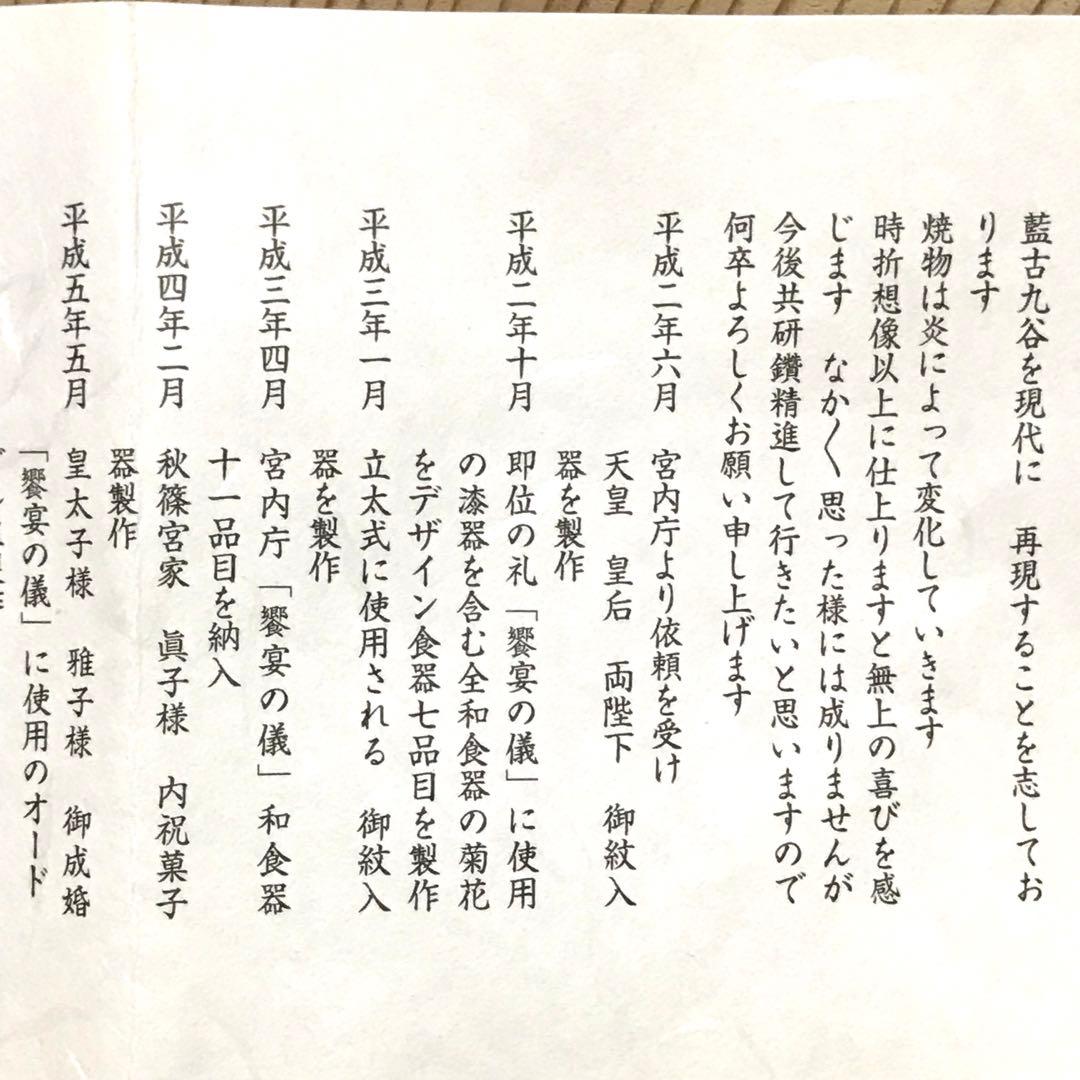 藍古九谷を現代に　再現することを志してお
ります
焼物は炎によって変化していきます
時折想像以上に仕上りますと無上の喜びを感
じます　なか〱思った様には成りませんが
今後共研鑽精進して行きたいと思いますので
何卒よろしくお願い申し上げます
平成二年六月　宮内庁より依頼を受け
天皇　皇后　両陛下　御紋入
器を製作
平成二年十月　即位の礼「饗宴の儀」に使用
の漆器を含む全和食器の菊花
をデザイン食器七品目を製作
平成三年一月　立太式に使用される　御紋入
器を製作
平成三年四月　宮内庁「饗宴の儀」和食器
十一品目を納入
平成四年二月　秋篠宮家　眞子様　内祝菓子
器製作
平成五年五月　皇太子様　雅子様　御成婚
「饗宴の儀」に使用のオード